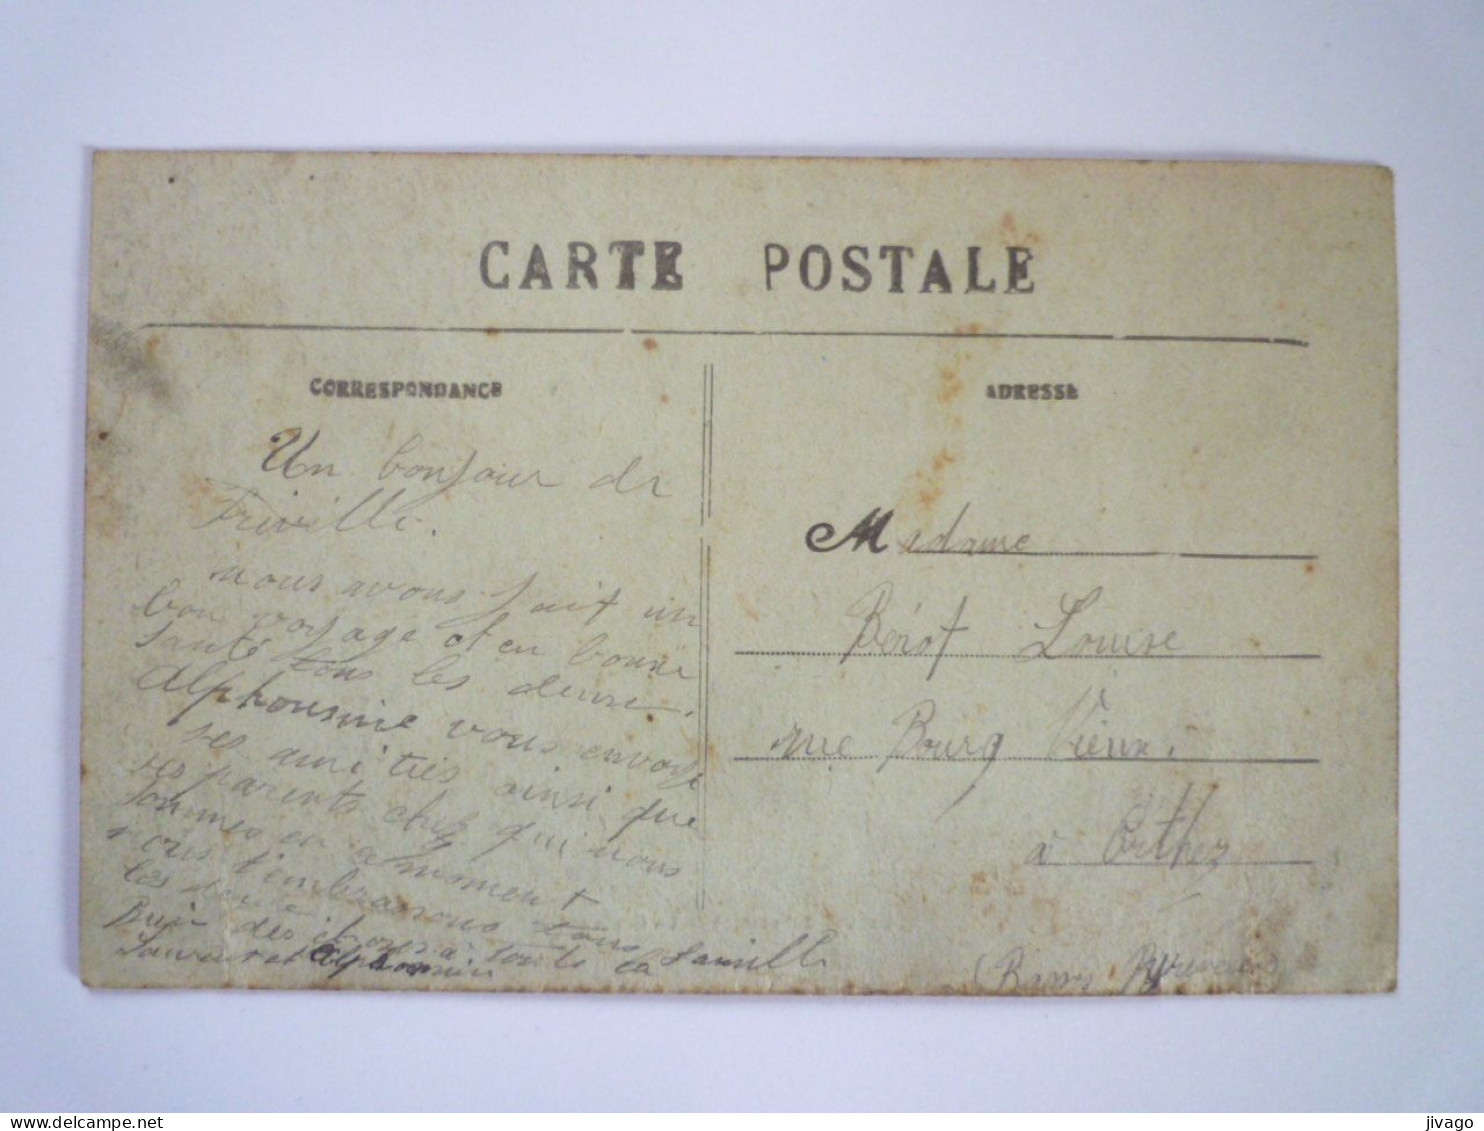 CARTE POSTALE
CORRESPONDANCE
Un bonjour de
Friville.
nous avons fait un
bon voyage et en bonne
santé tous les deux.
Alphonsine vous envoye
ses amitiés ainsi que
ses parents chez qui nous
sommes en ce moment
nous t'embrassons tous
les deux
Bien des choses à toute la famille
et Alphonsine
ADRESSE
Madame
Bérot Louise
rue Bourg Vieux.
à Orthez
(Basses Pyrénées)
delcampe.net
jivago